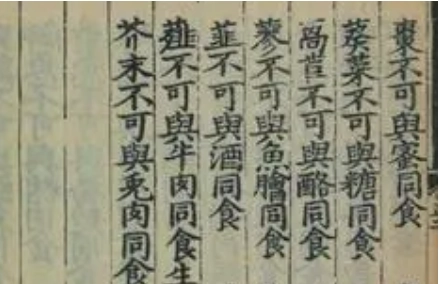 棗不可與蜜同食
葵菜不可與糖同食
萵苣不可與酪同食
蓼不可與魚膾同食
韮不可與酒同食
薤不可與牛肉同食生
芥末不可與兎肉同食